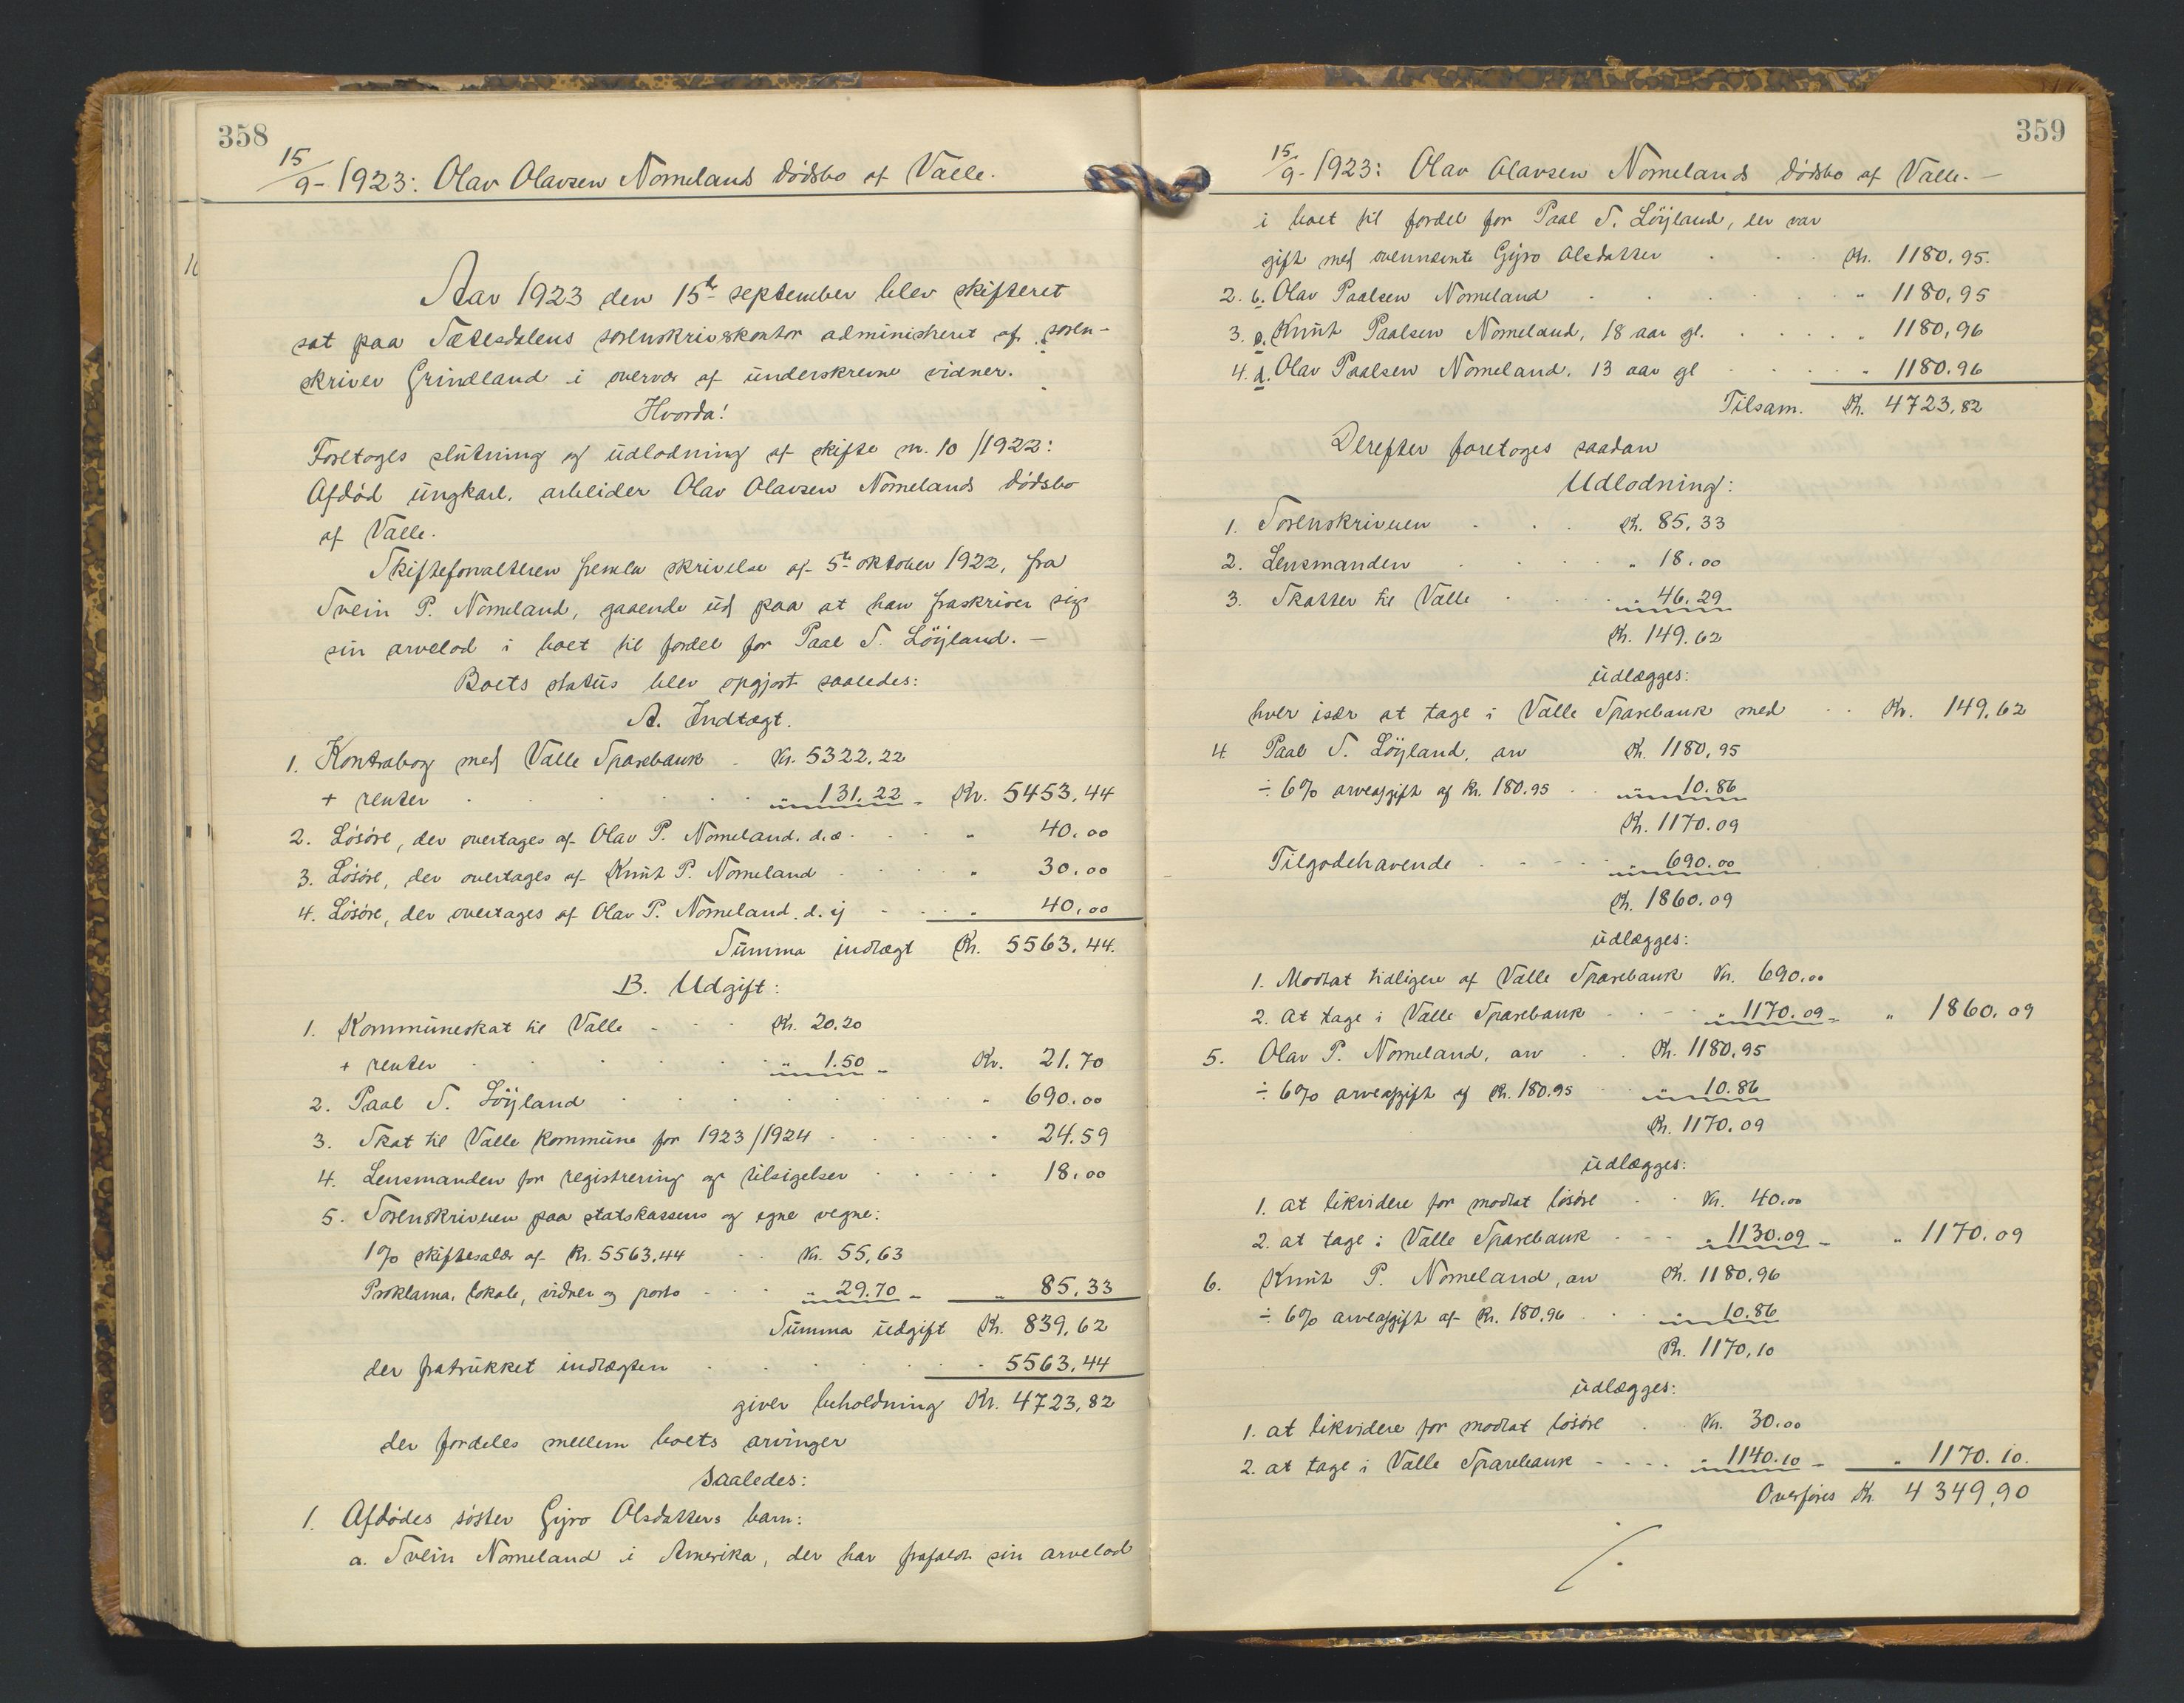 358
15/9-1923: Olav Olavsen Nomelands dödsbo af Valle.
Aar 1923 den 15de september blev skifteret
sat paa Sætesdalens sorenskriverkontor administreret af soren-
skriver Grindland i overvær af underskrevne vidner.
Hvorda!
Foretoges slutning og udlodning af skifte nr. 10/1922:
Afdöd ungkarl, arbeider Olav Olavsen Nomelands dödsbo
af Valle.
Skifteforvalteren fremla skrivelse af 5te oktober 1922, fra
Svein P. Nomeland, gaaende ud paa at han fraskriver sig
sin arvelod i boet til fordel for Paal S. Löyland. –
Boets status blev opgjort saaledes:
A. Indtægt.
1. Kontrabog med Valle Sparebank - Kr. 5322,22
+ renter . . . . . . " 131.22 - Kr. 5453,44
2. Lösöre, der overtages af Olav P. Nomeland. d.æ. . . " 40,00
3. Lösöre, der overtages af Knut P. Nomeland . . . " 30,00
4. Lösöre, der overtages af Olav P. Nomeland. d. y - . . " 40,00
Summa indtægt Kr. 5563,44.
B. Udgift:
1. Kommuneskat til Valle - - - Kr. 20.20
+ renter . . . . . . " 1.50 - Kr. 21.70
2. Paal S. Löyland . . . . . . . . " 690.00
3. Skat til Valle kommune for 1923/1924 . . . . " 24.59
4. Lensmanden for registrering og tilsigelser . . . . " 18.00
5. Sorenskriveren paa statskassens og egne vegne:
1% skiftesalær af Kr. 5563,44 . . Kr. 55,63
Proklama, lokale, vidner og porto . . . " 29.70 - " 85,33
Summa udgift Kr. 839,62
der fratrukket indtægten . . . . . . " 5563,44
giver beholdning Kr. 4723,82
der fordeles mellem boets arvinger
saaledes:
1. Afdödes söster Gyro Olsdatters barn:
a. Svein Nomeland i Amerika, der har frafaldt sin arvelod
359
15/9-1923: Olav Olavsen Nomelands dödsbo af Valle. –
i boet til fordel for Paal S. Löyland, der var
gift med ovennævnte Gyro Olsdatter . . . Kr. 1180,95.
2. b. Olav Paalsen Nomeland . . . . . . " 1180,95
3. c. Knut Paalsen Nomeland, 18 aar gl. . . . . " 1180,96
4. d. Olav Paalsen Nomeland, 13 aar gl . . . . " 1180.96
Tilsam. Kr. 4723,82
Derefter foretoges saadan
Udlodning:
1. Sorenskriveren . . . Kr. 85,33
2. Lensmanden . . . . " 18,00
3. Skatter til Valle . . . " 46.29
Kr. 149.62
udlægges:
hver især at tage i Valle Sparebank med . . Kr. 149,62
4. Paal S. Löyland, arv Kr. 1180,95
÷ 6% arveafgift af Kr. 180.95 . . " 10.86
Kr. 1170.09
Tilgodehavende . - - . . " 690.00
Kr. 1860.09
udlægges:
1. Modtat tidligere af Valle Sparebank Kr. 690,00
2. At tage i Valle Sparebank . . - . " 1170.09 - " 1860.09
5. Olav P. Nomeland, arv . . Kr. 1180,95
÷ 6% arveafgift af Kr. 180.95 . . " 10.86
Kr. 1170.09
udlægges:
1. at likvidere for modtat lösöre . . Kr. 40.00
2. at tage i Valle Sparebank . . - - " 1130.09 - " 1170.09
6. Knut P. Nomeland, arv Kr. 1180.96
÷ 6% arveafgift af Kr. 180,96 . . " 10.86
Kr. 1170,10
udlægges:
1. at likvidere for modtat lösöre . . Kr. 30.00
2. at tage i Valle Sparebank - - - - " 1140.10 - " 1170.10.
Overföres Kr. 4349,90
./.